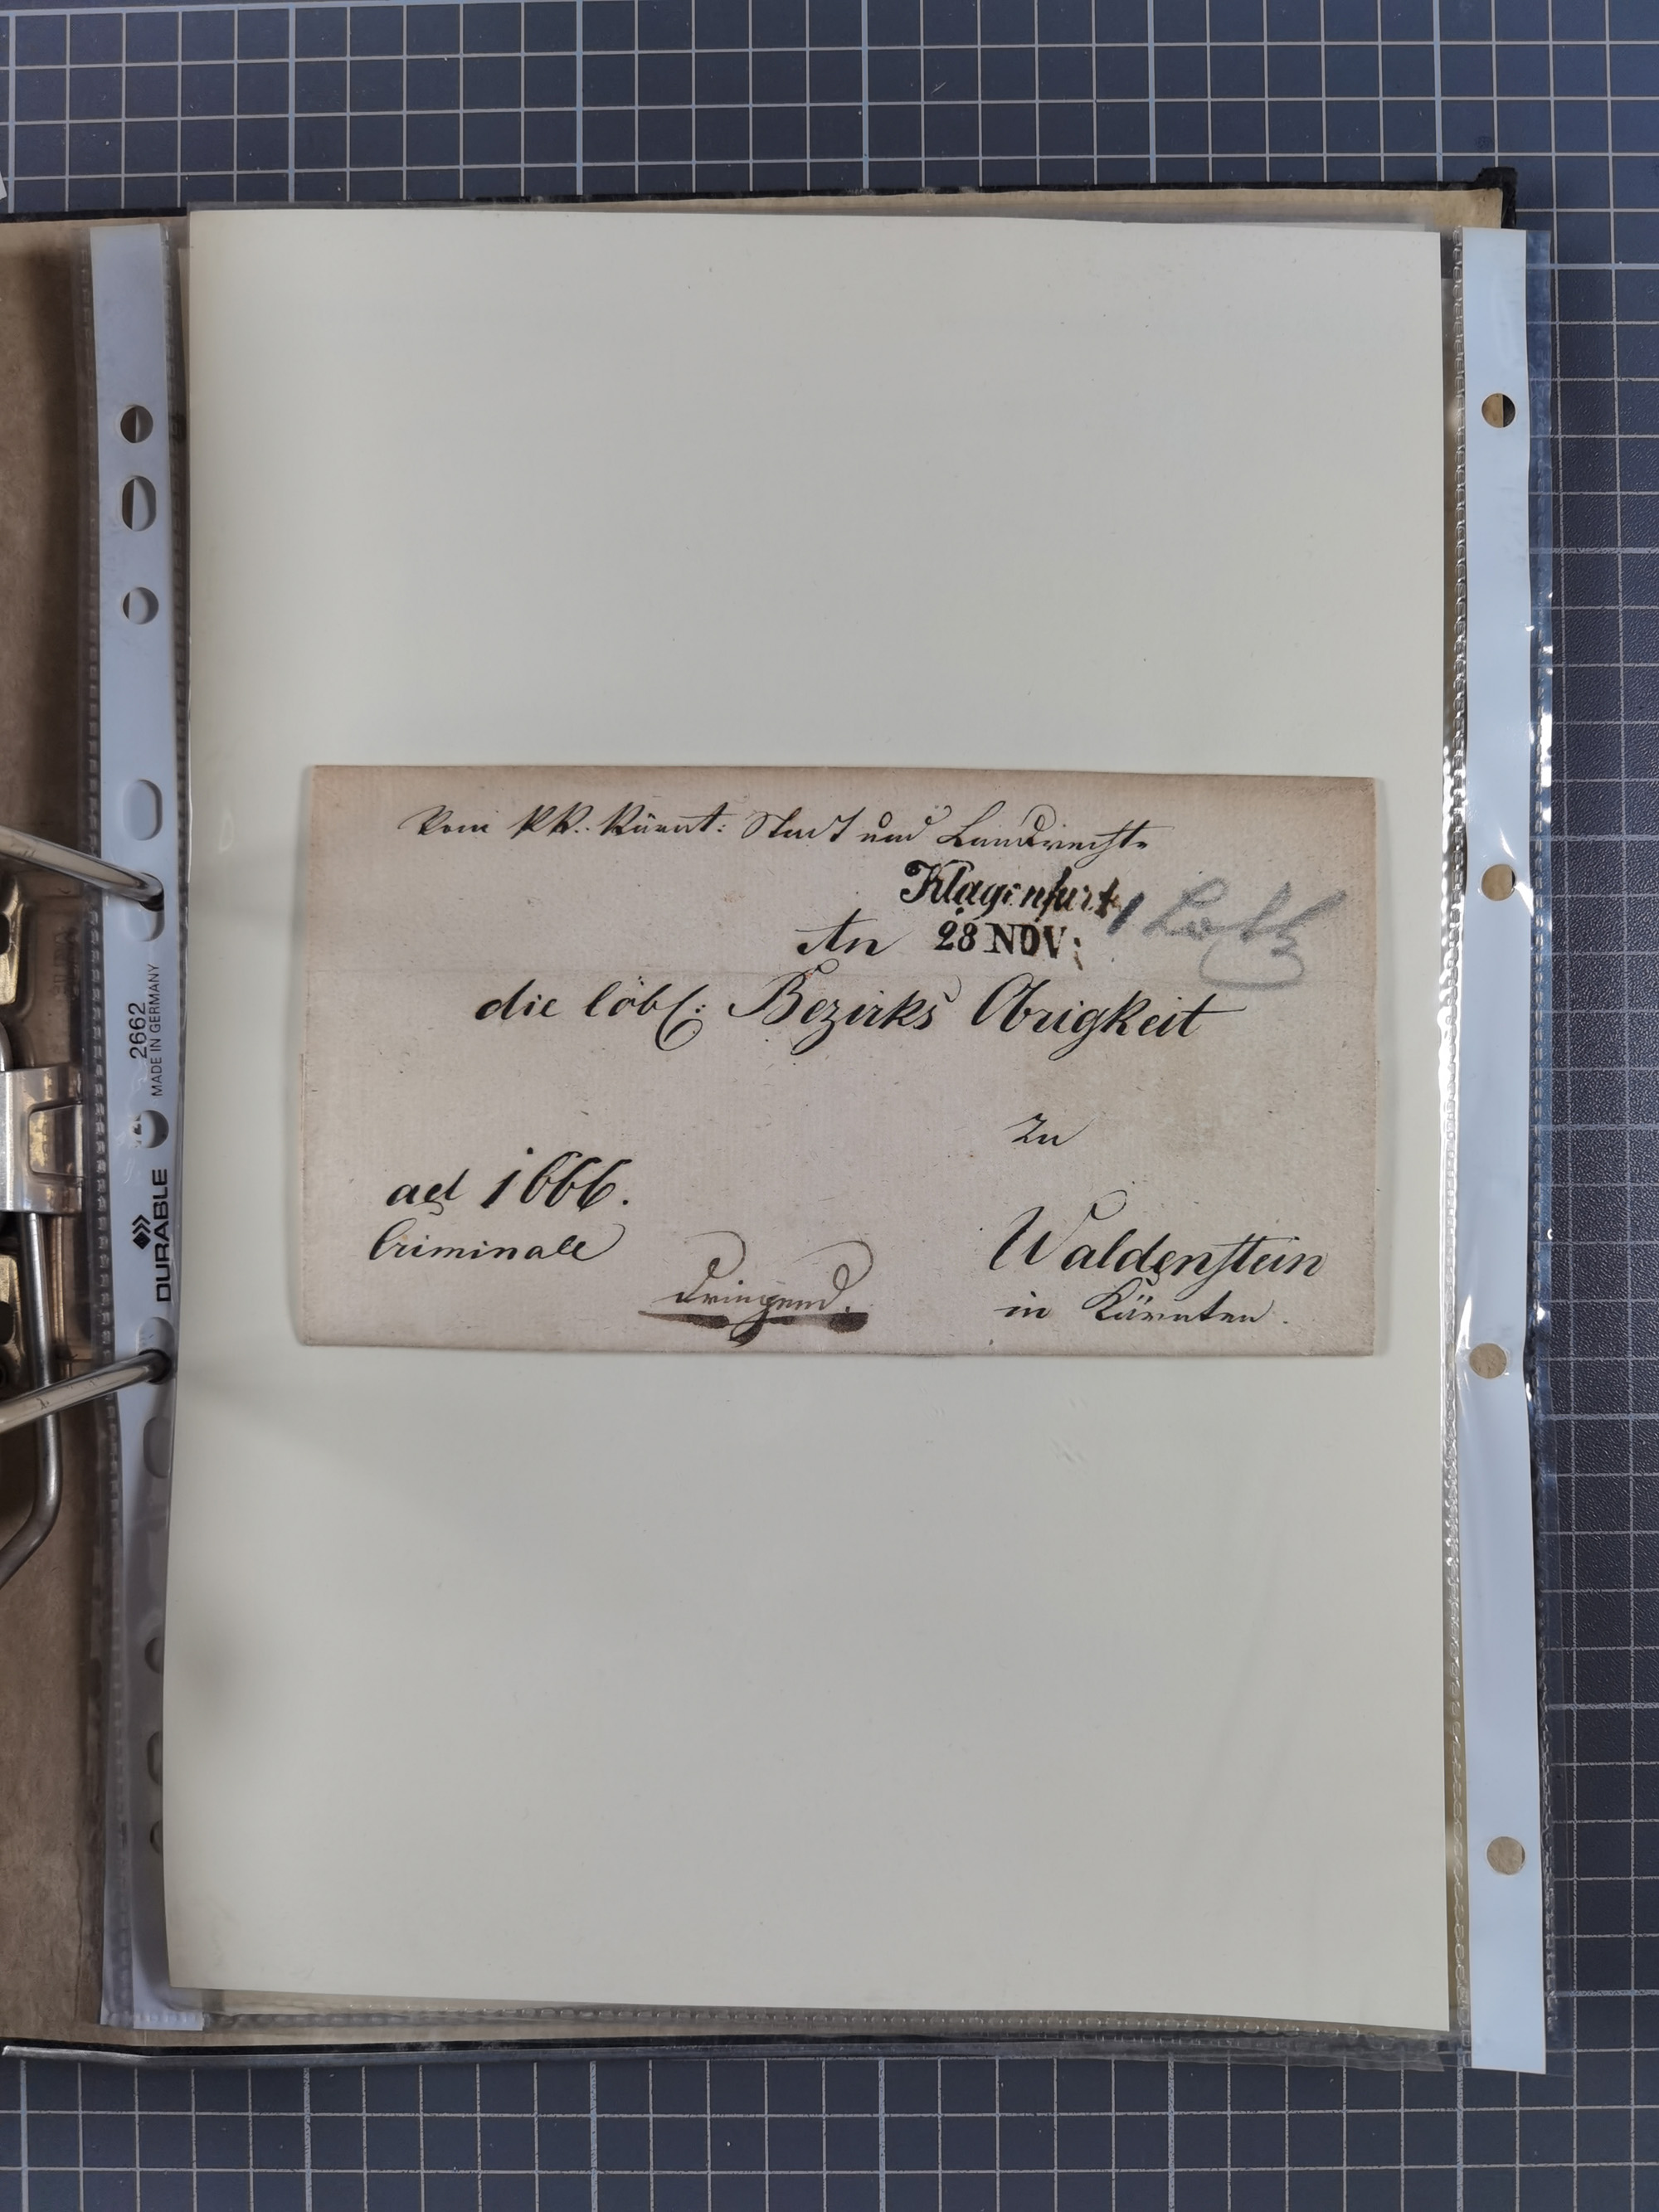 Vom k.k. Kärnt: Stadt und Landrechte
Klagenfurt
1 Loth
An 28 NOV:
die löbl: Bezirks Obrigkeit
zu
ad 1666.
Criminale
Waldenstein
dringend.
in Kärnten.
DURABLE
2662
MADE IN GERMANY